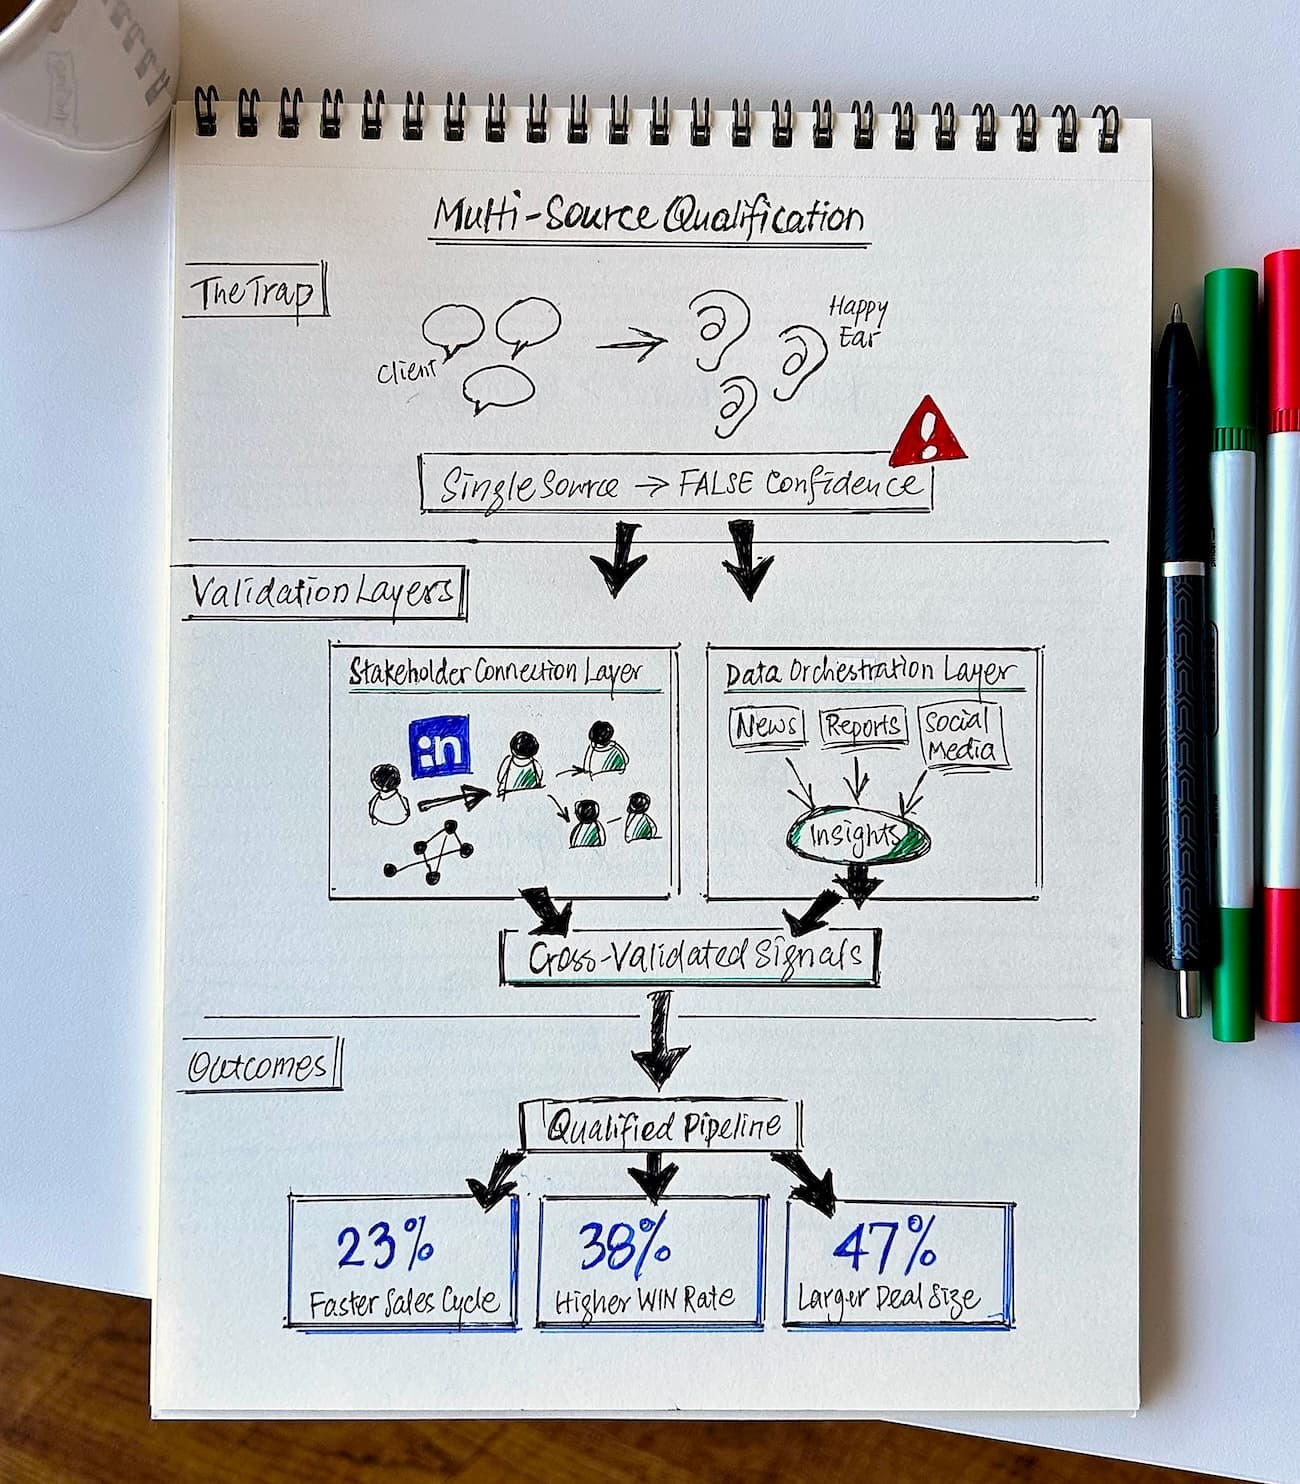 Multi-Source Qualification
The Trap
Client
Happy
Ear
Single Source → FALSE Confidence
Validation Layers
Stakeholder Connection Layer
in
Data Orchestration Layer
News
Reports
Social
Media
Insights
Cross-Validated Signals
Outcomes
Qualified Pipeline
23%
Faster Sales Cycle
38%
Higher WIN Rate
47%
Larger Deal Size